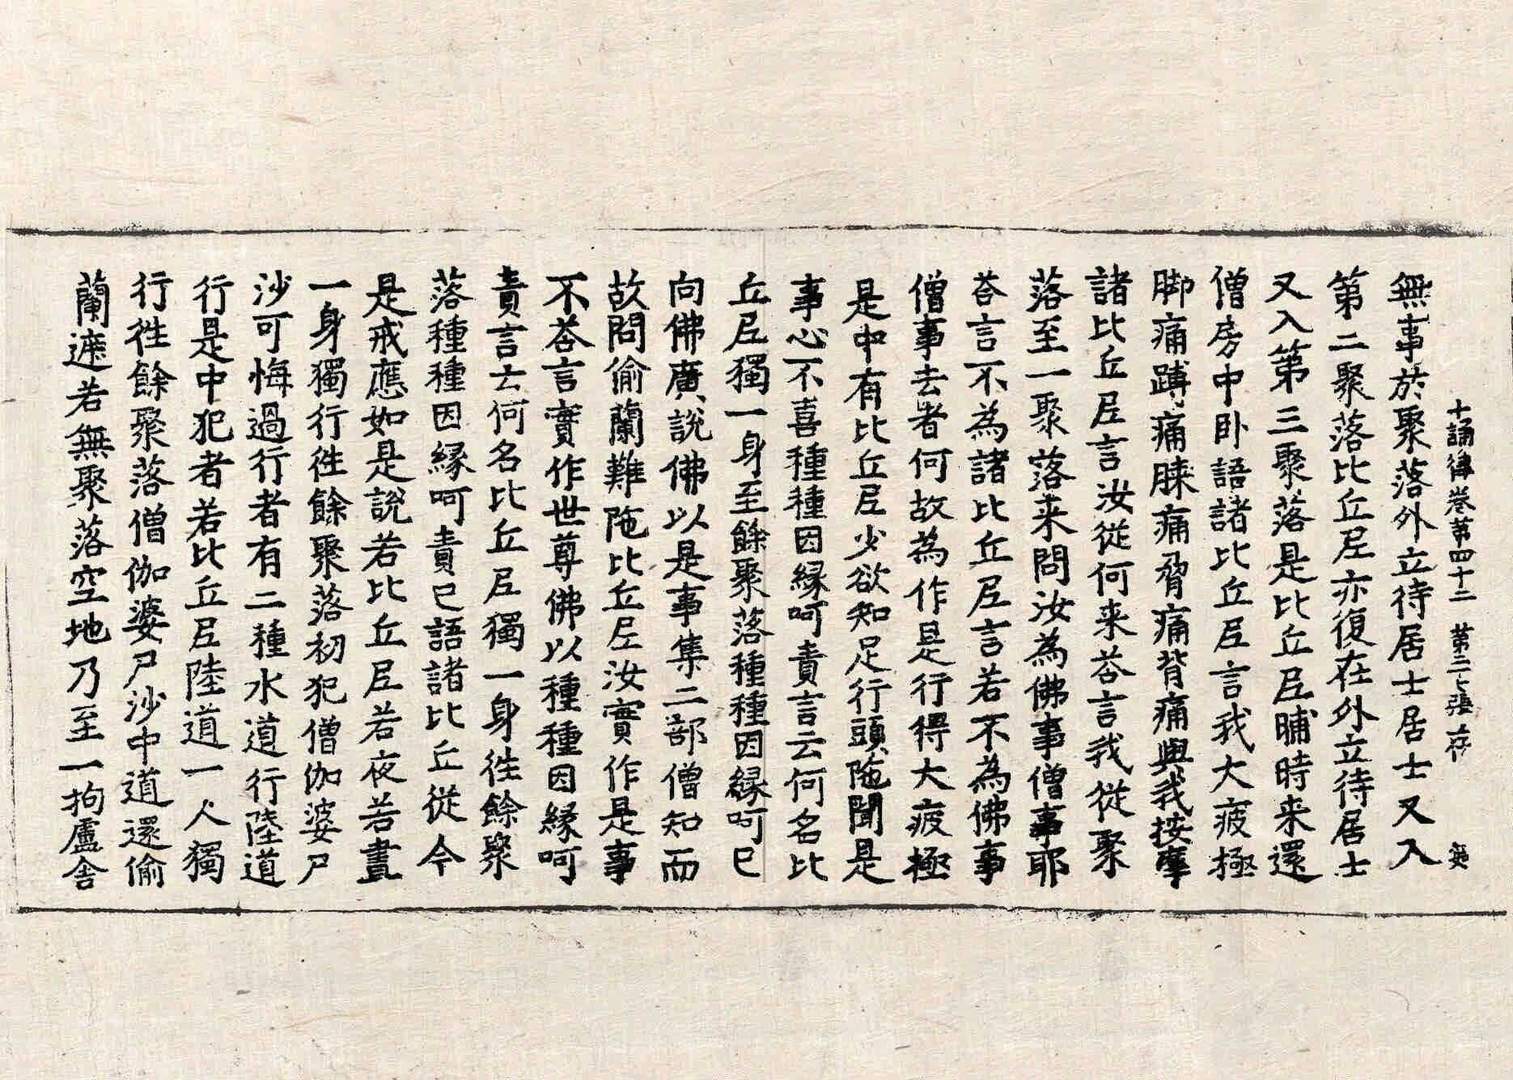 十誦律卷第四十二 第三七張 存
無事於聚落外立待居士居士又入
第二聚落比丘尼亦復在外立待居士
又入第三聚落是比丘尼晡時来還
僧房中卧語諸比丘尼言我大疲極
脚痛䏶痛膝痛脅痛背痛與我按摩
諸比丘尼言汝從何来荅言我從聚
落至一聚落来問汝為佛事僧事耶
荅言不為諸比丘尼言若不為佛事
僧事去者何故為作是行得大疲極
是中有比丘尼少欲知足行頭陁聞是
事心不喜種種因緣呵責言云何名比
丘尼獨一身至餘聚落種種因緣呵已
向佛廣說佛以是事集二部僧知而
故問偷蘭難陁比丘尼汝實作是事
不荅言實作世尊佛以種種因緣呵
責言云何名比丘尼獨一身徃餘聚
落種種因緣呵責已語諸比丘從今
是戒應如是說若比丘尼若夜若晝
一身獨行徃餘聚落初犯僧伽婆尸
沙可悔過行者有二種水道行陸道
行是中犯者若比丘尼陸道一人獨
行徃餘聚落僧伽婆尸沙中道還偷
蘭遮若無聚落空地乃至一拘盧舍